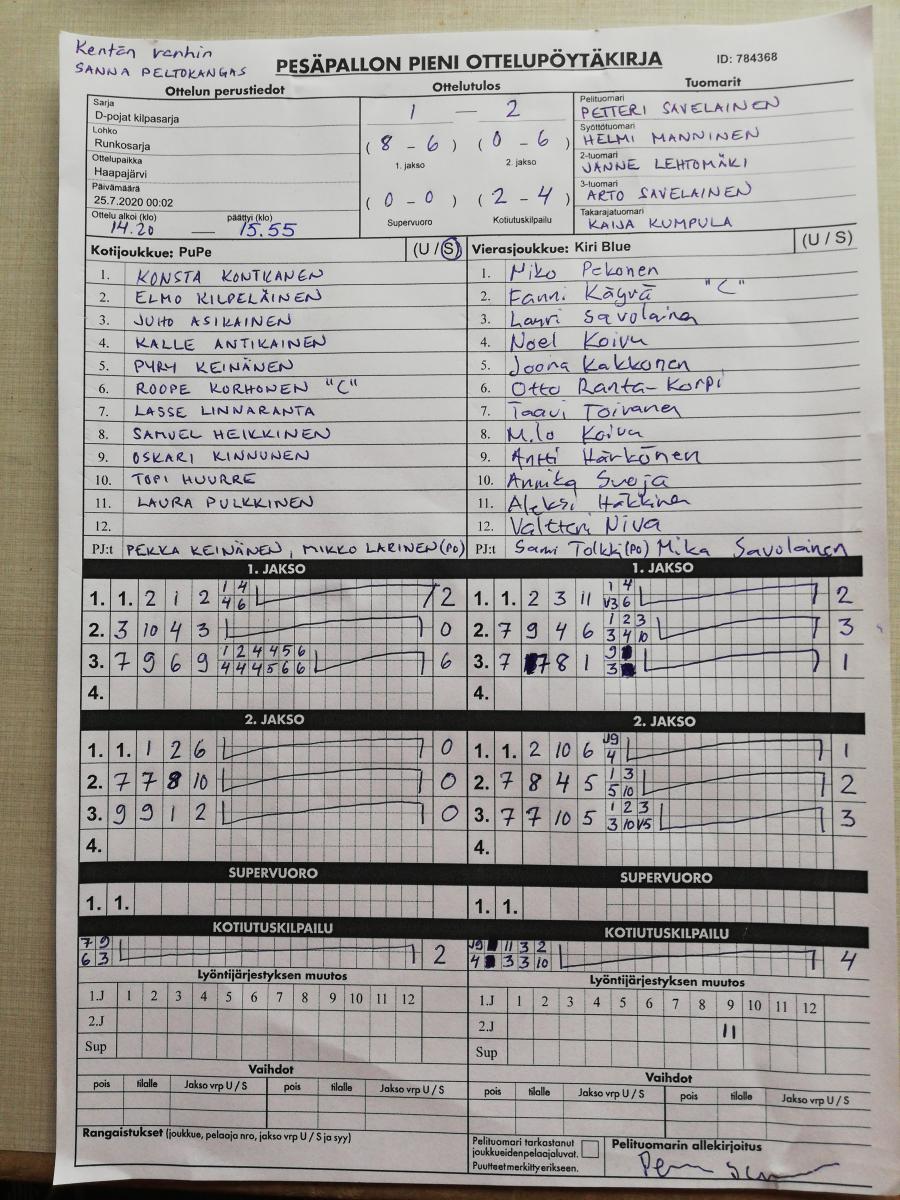 Kentän vanhin
SANNA PELTOKANGAS
PESÄPALLON PIENI OTTELUPÖYTÄKIRJA
ID: 784368
Ottelun perustiedot
Sarja
D-pojat kilpasarja
Lohko
Runkosarja
Ottelupaikka
Haapajärvi
Päivämäärä
25.7.2020 00:02
Ottelu alkoi (klo) päättyi (klo)
14.20 — 15.55
Ottelutulos
1 — 2
(8 - 6) (0 - 6)
1. jakso 2. jakso
(0 - 0) (2 - 4)
Supervuoro Kotiutuskilpailu
Tuomarit
Pelituomari
PETTERI SAVELAINEN
Syöttötuomari
HELMI MANNINEN
2-tuomari
JANNE LEHTOMÄKI
3-tuomari
ARTO SAVELAINEN
Takarajatuomari
KAIJA KUMPULA
Kotijoukkue: PuPe (U / S)
1. KONSTA KONTKANEN
2. ELMO KILPELÄINEN
3. JUHO ASIKAINEN
4. KALLE ANTIKAINEN
5. PYRY KEINÄNEN
6. ROOPE KORHONEN "C"
7. LASSE LINNARANTA
8. SAMUEL HEIKKINEN
9. OSKARI KINNUNEN
10. TOPI HUURRE
11. LAURA PULKKINEN
12.
PJ:t PEKKA KEINÄNEN, MIKKO LARINEN (PO)
Vierasjoukkue: Kiri Blue (U / S)
1. Niko Pekonen
2. Fanni Käyrä "C"
3. Lauri Savolainen
4. Noel Koivu
5. Joona Kakkonen
6. Otto Ranta-Korpi
7. Taavi Toivanen
8. Milo Koivu
9. Antti Härkönen
10. Annika Suoja
11. Aleksi Häkkinen
12. Valtteri Niva
PJ:t Sami Tolkki (PO) Mika Savolainen
1. JAKSO
1. 1. 2 1 2 1 4 2
4 6
2. 3 10 4 3 0
3. 7 9 6 9 1 2 4 4 5 6 6
4 4 4 5 6 6
4.
1. JAKSO
1. 1. 2 3 11 1 4 2
V3 6
2. 7 9 4 6 1 2 3 3
3 4 10
3. 7 7 8 1 9 1
3
4.
2. JAKSO
1. 1. 1 2 6 0
2. 7 7 8 10 0
3. 9 9 1 2 0
4.
2. JAKSO
1. 1. 2 10 6 J9 1
4
2. 7 8 4 5 1 3 2
5 10
3. 7 7 10 5 1 2 3 3
3 10 V5
4.
SUPERVUORO
1. 1.
SUPERVUORO
1. 1.
KOTIUTUSKILPAILU
7 9 2
6 3
KOTIUTUSKILPAILU
J9 11 3 2 4
4 3 3 10
Lyöntijärjestyksen muutos
1.J 1 2 3 4 5 6 7 8 9 10 11 12
2.J
Sup
Lyöntijärjestyksen muutos
1.J 1 2 3 4 5 6 7 8 9 10 11 12
2.J 11
Sup
Vaihdot
pois tilalle Jakso vrp U / S pois tilalle Jakso vrp U / S
Vaihdot
pois tilalle Jakso vrp U / S pois tilalle Jakso vrp U / S
Rangaistukset (joukkue, pelaaja nro, jakso vrp U / S ja syy)
Pelituomari tarkastanut
joukkueiden pelaajaluvat.
Puutteet merkitty erikseen.
Pelituomarin allekirjoitus